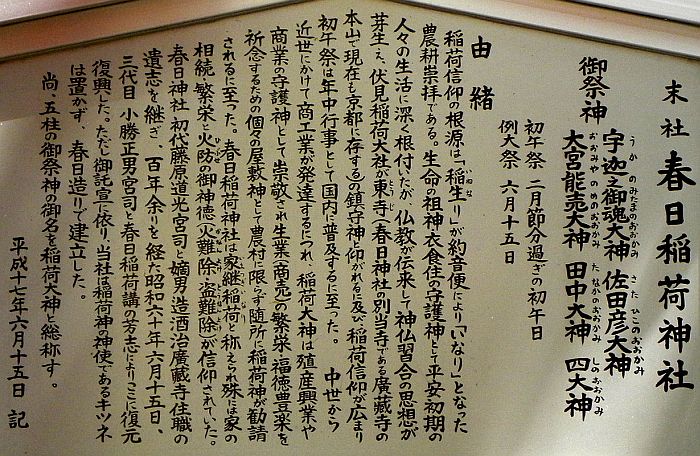 末社 春日稲荷神社
御祭神
宇迦之御魂大神 佐田彦大神
大宮能売大神 田中大神 四大神
初午祭 二月節分過ぎの初午日
例大祭 六月十五日
由緒
稲荷信仰の根源は「稲生り」が約音便により「いなり」となった
農耕崇拝である。生命の祖神衣食住の守護神として平安初期の
人々の生活に深く根付いたが、仏教が伝来して神仏習合の思想が
芽生え、伏見稲荷大社が東寺(春日神社の別当寺である廣蔵寺の
本山で現在も京都に存する)の鎮守神と仰がれるに及び稲荷信仰が広まり
初午祭は年中行事として国内に普及するに至った。 中世から
近世にかけて商工業が発達するにつれ、稲荷大神は殖産興業や
商業の守護神として崇敬され生業(商売)の繁栄・福徳豊楽を
祈念するための個々の屋敷神として農村に限らず随所に稲荷神が勧請
されるに至った。春日稲荷神社は家継稲荷と称えられ殊には家の
相続・繁栄と火防の御神徳(火難除・盗難除)が信仰されていた。
春日神社初代藤原道光宮司と嫡男造酒治廣蔵寺住職の
遺志を継ぎ、百年余りを経た昭和六十年六月十五日、
三代目小勝正男宮司と春日稲荷講の芳志によりここに復元
復興した。ただし御託宣に依り、当社は稲荷神の神使であるキツネ
は置かず、春日造りで建立した。
尚、五柱の御祭神の御名を稲荷大神と総称す。
平成十七年六月十五日 記